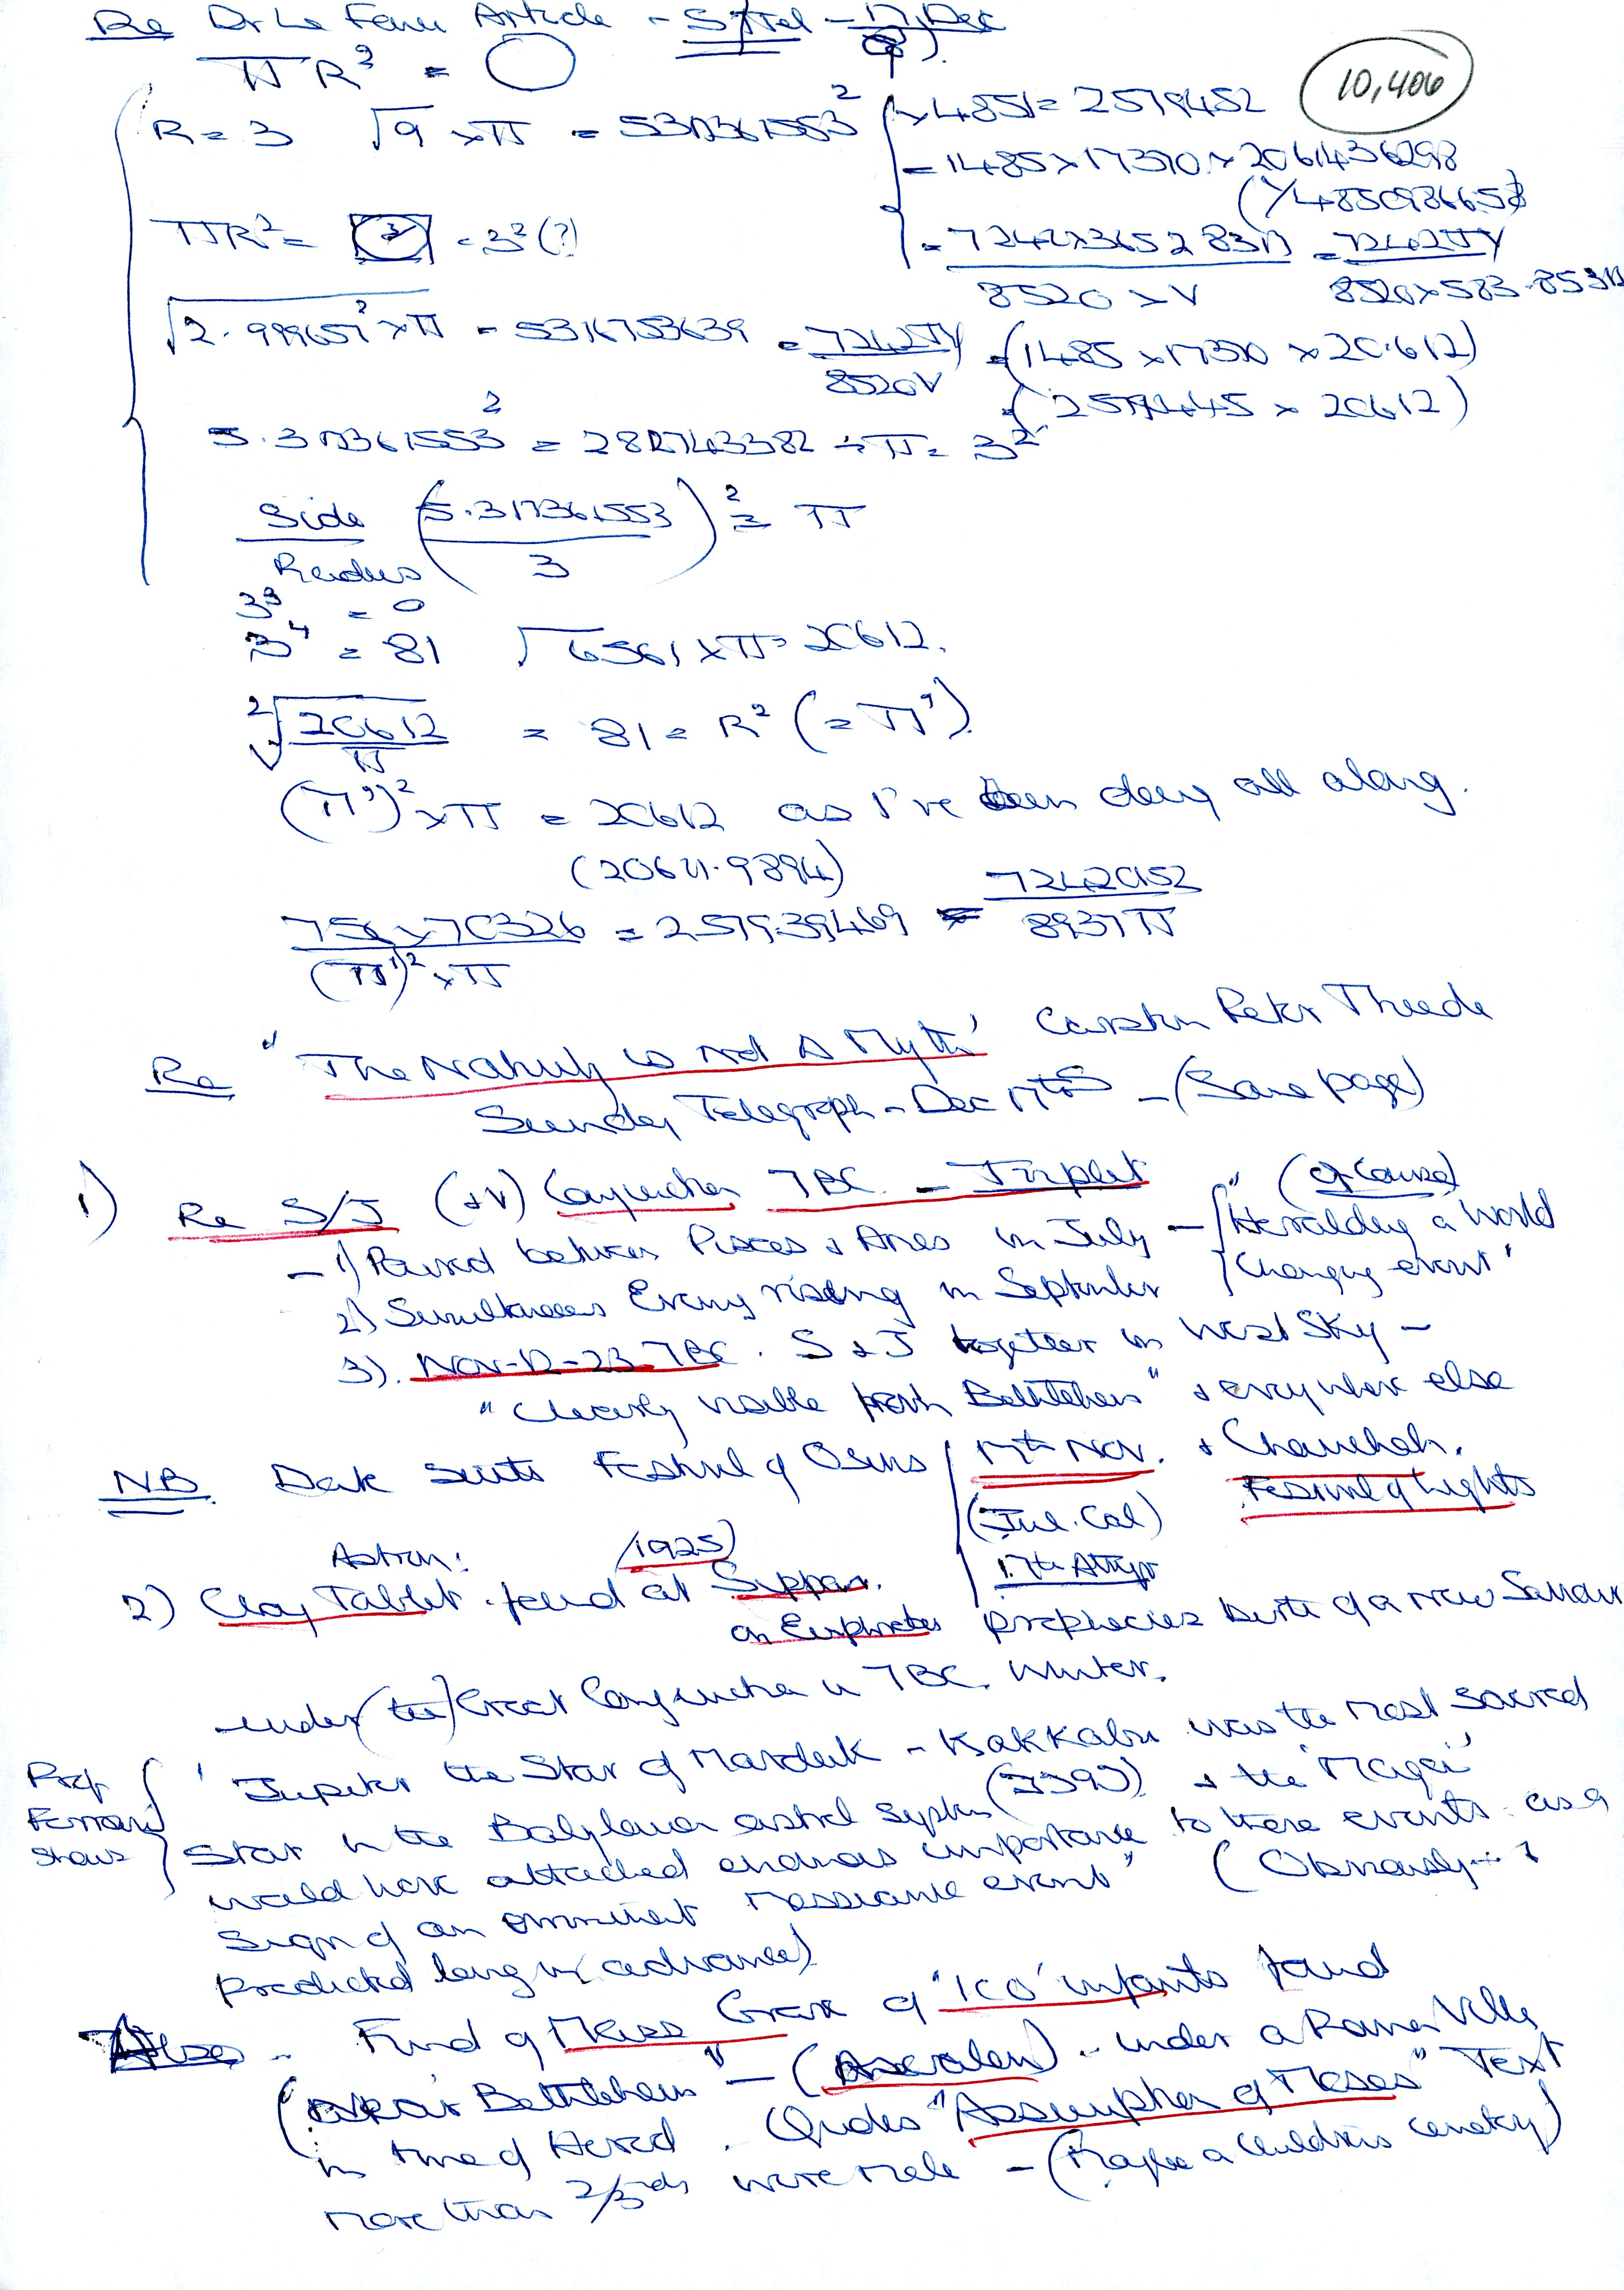 Re Dr Le Fanu Article - S/Tel - 17. Dec
πR² = ◯
10,406
R = 3 √9 × π = 5317361553²
× 4851 = 2579452
= 1485 × 17370 × 2061436298
(1/485098665
πR² = = 3²(?)
= 7242 × 365 2 83
8520 × V
= 7242πY
8520 × 583.853
√2.999657² × π = 5316753639 = 7242πY
8520V
= (1485 × 17370 × 20.612)
(2579445 × 20612)
5.317361553² = 282743382 ÷ π = 3²
Side
Radius
(5.317361553
3)² = π
3³ = 0
3⁴ = 81 √6561 × π = 20612.
²√20612
π
= 81 = R² (= π').
(π')² × π = 20612 as I've been doing all along.
(20611.9894)
756 × 70326
(π')² × π
= 2579.39469 = 7242052
8937π
Re "The Nativity is not a Myth' Carsten Peter Thiede
Sunday Telegraph - Dec 17th - (Same page)
1) Re S/J (+V) Conjunction 7BC. - Triplet (of course)
- 1) Paired between Pisces & Aries in July - "Heralding a World
Changing event"
2) Simultaneous Evening rising in September
3). Nov-12-23-7BC. S & J together in West Sky -
"clearly visible from Bethlehem" & everywhere else
NB. Date suits Festival of Osiris 17th Nov. & Chanukah.
(Jul. Cal) Festival of Lights
17th Athyr
Astron: (1925)
2) Clay Tablet found at Sippar.
on Euphrates prophecies birth of a new Saviour
under (the) Great Conjunction in 7BC. winter.
Prof
Ferrari
shows
'Jupiter the Star of Marduk - Kakkabu was the most sacred
Star in the Babylonian astral system & the 'Magi'
would have attached enormous importance to these events as a
sign of an imminent messianic event" (Obviously
predicted long in advance)
Also - Find of Mass Grave of '100' infants found
(near Bethlehem" - (Ascalon) - under a Roman Villa
in time of Herod. Quotes "Assumption of Moses" Text
more than 2/3rds were male - (Maybe a Childrens cemetery)